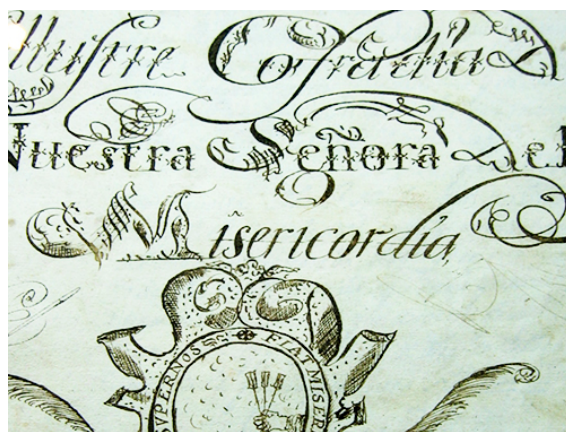 Illustre Cofradia de
Nuestra Señora de l
Misericordia
SVPERNOS FIAT MISER